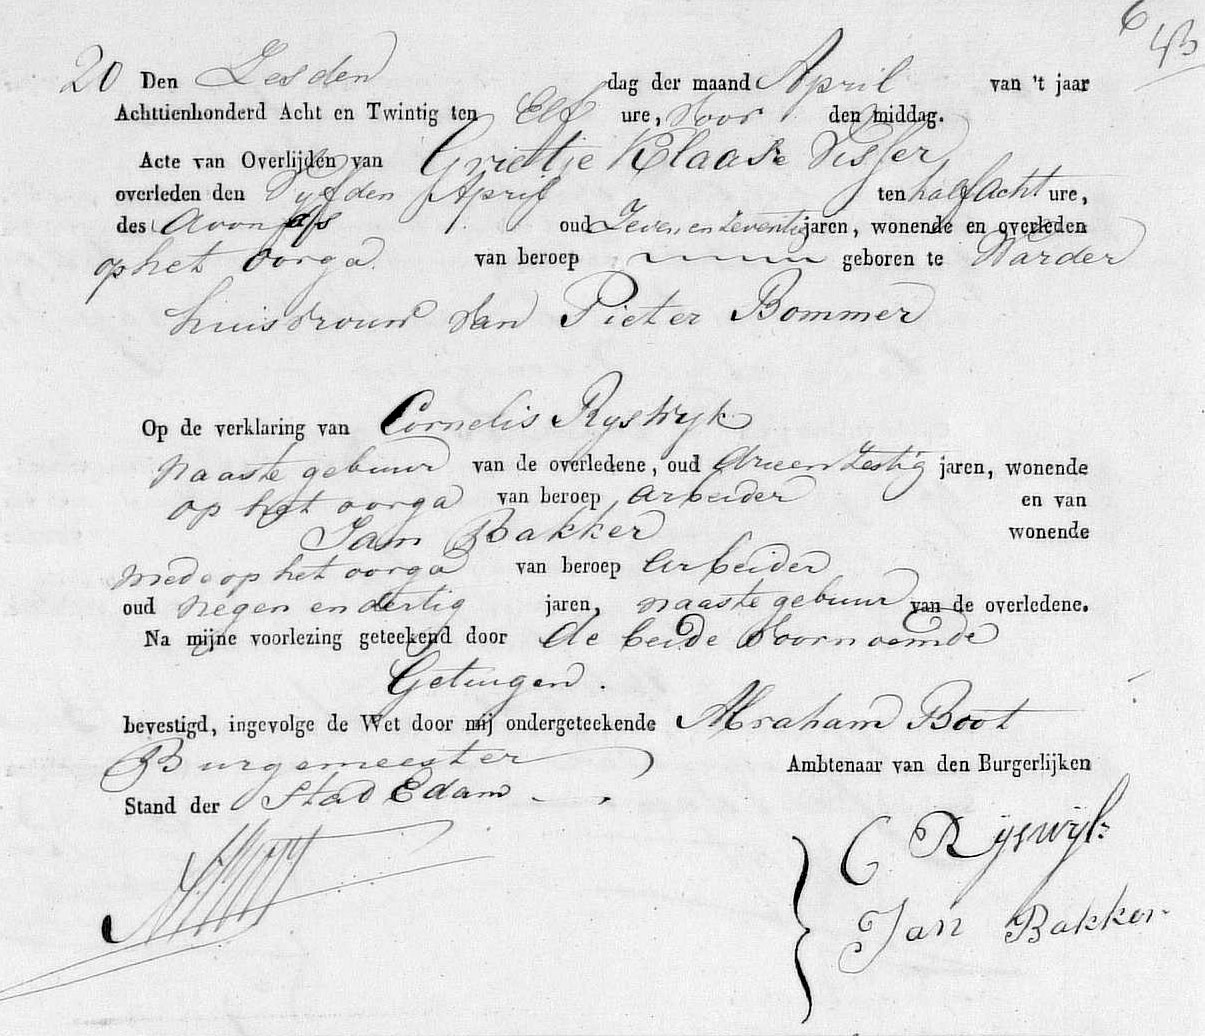 6
43
20 Den Zesden dag der maand April van 't jaar
Achttienhonderd Acht en Twintig ten Elf ure, voor den middag.
Acte van Overlijden van Grietje Klaase Visser
overleden den Vyfden April ten half Acht ure,
des Avonds oud Zeven en zeventig jaren, wonende en overleden
op het oorga van beroep geboren te Warder
huisvrouw van Pieter Bommer
Op de verklaring van Cornelis Ryswyk
naaste gebuur van de overledene, oud drie en zestig jaren, wonende
op het oorga van beroep arbeider en van
Jan Bakker wonende
mede op het oorga van beroep arbeider
oud negen en dertig jaren, naaste gebuur van de overledene.
Na mijne voorlezing geteekend door de beide voornoemde
Getuigen.
bevestigd, ingevolge de Wet door mij ondergeteekende Abraham Boot
Burgemeester Ambtenaar van den Burgerlijken
Stand der Stad Edam
C Ryswyk
Jan Bakker